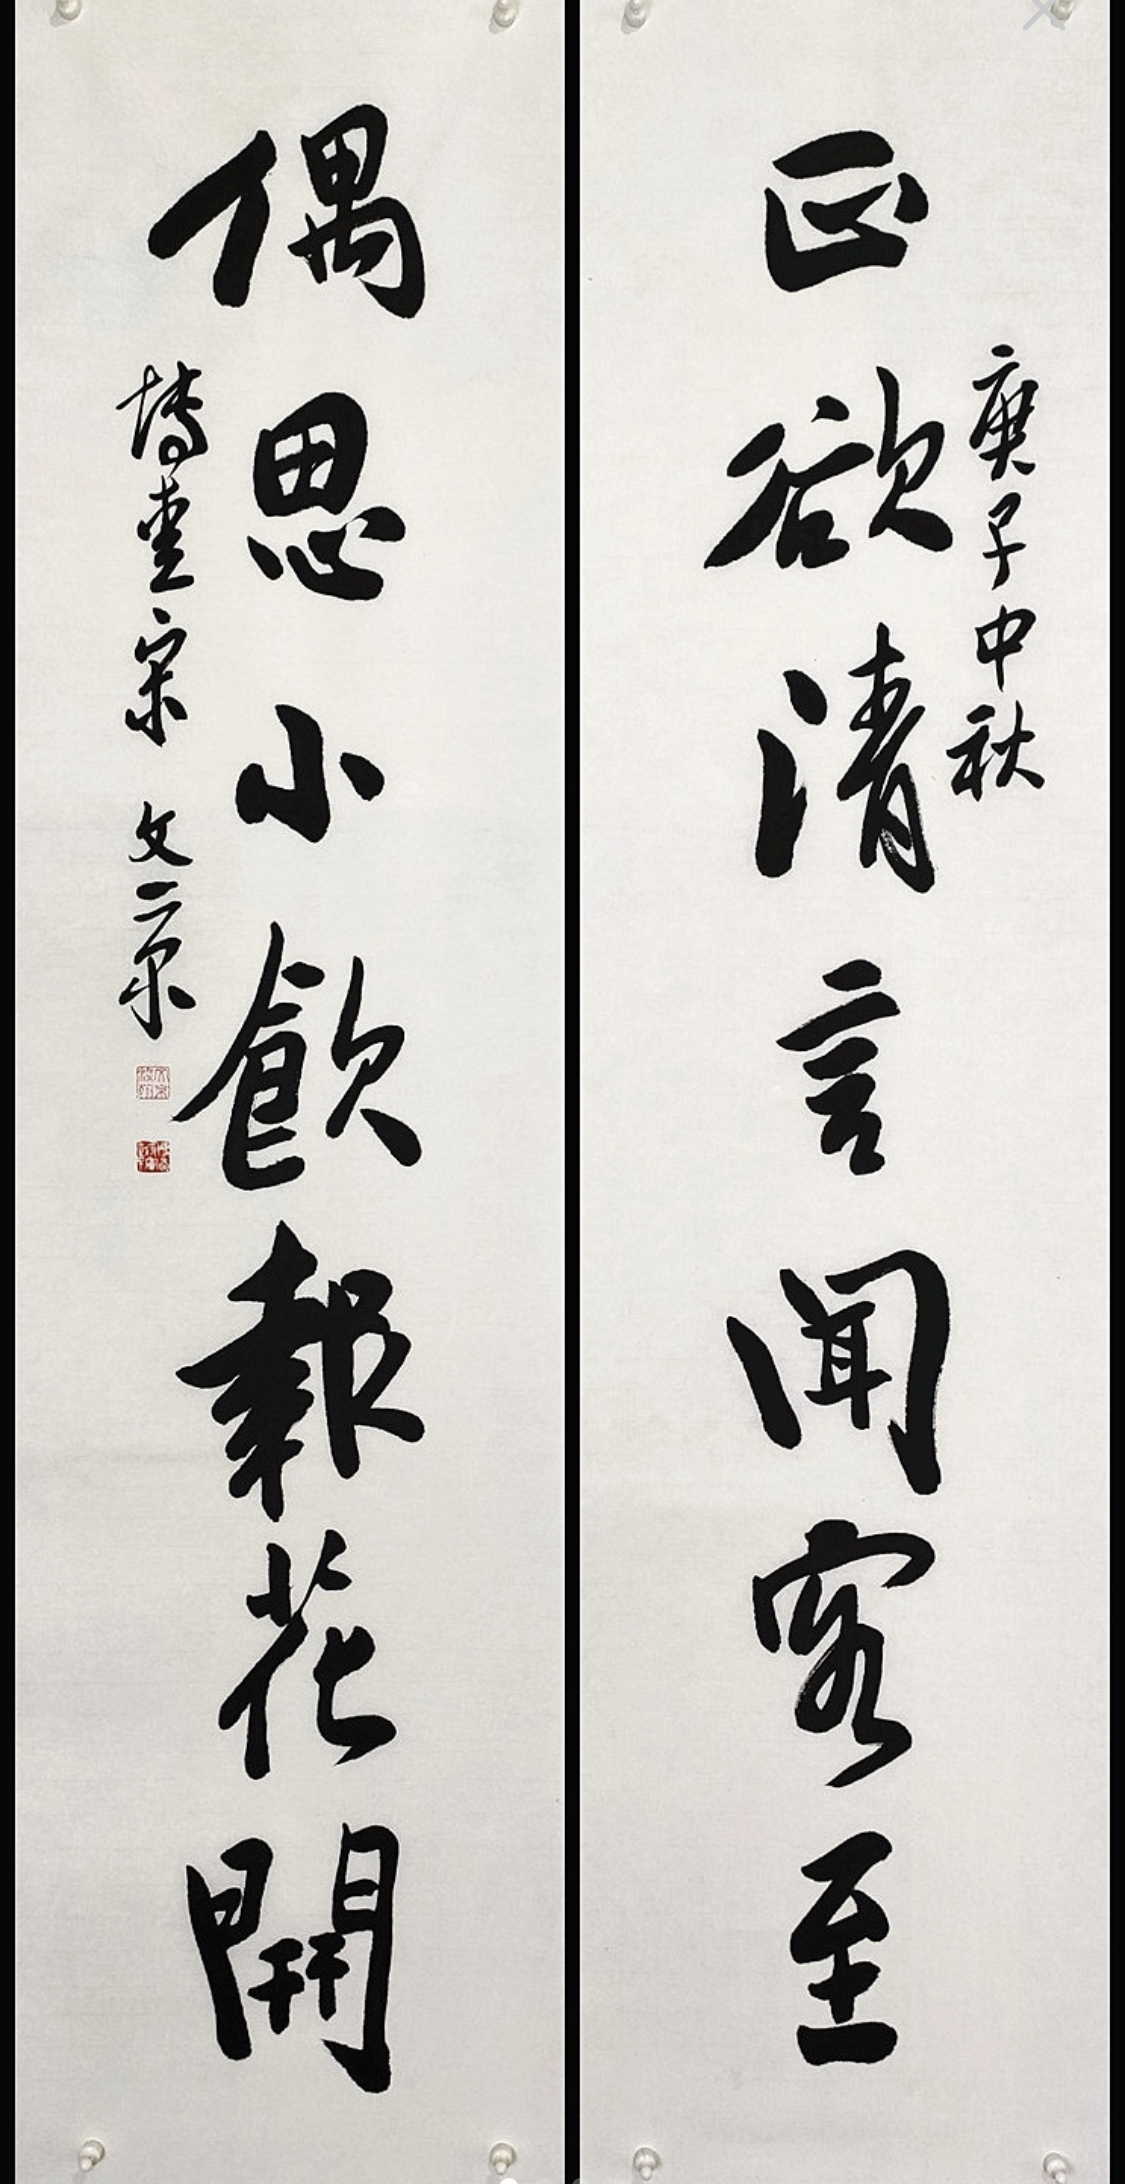 正欲清言聞客至
庚子中秋
偶思小飲報花開
塼壹宗文京